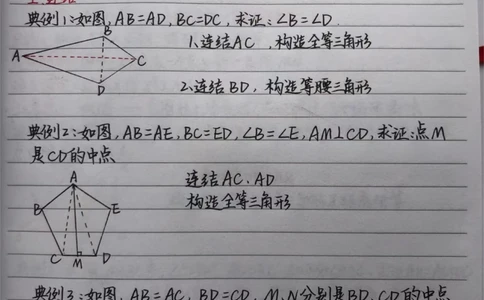 典例1:如图,AB=AD,BC=DC,求证:∠B=∠D.
1、连结AC,构造全等三角形
2、连结BD,构造等腰三角形
A
B
C
D
典例2:如图,AB=AE,BC=ED,∠B=∠E,AM⊥CD,求证:点M
是CD的中点
连结AC、AD
构造全等三角形
A
B
E
C
M
D
典例3:如图,AB=AC,BD=CD,M、N分别是BD、CD的中点